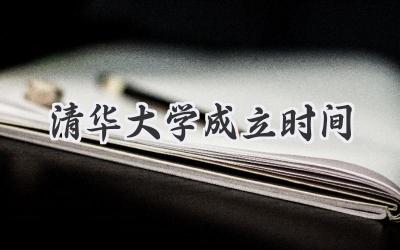 清华大学成立时间